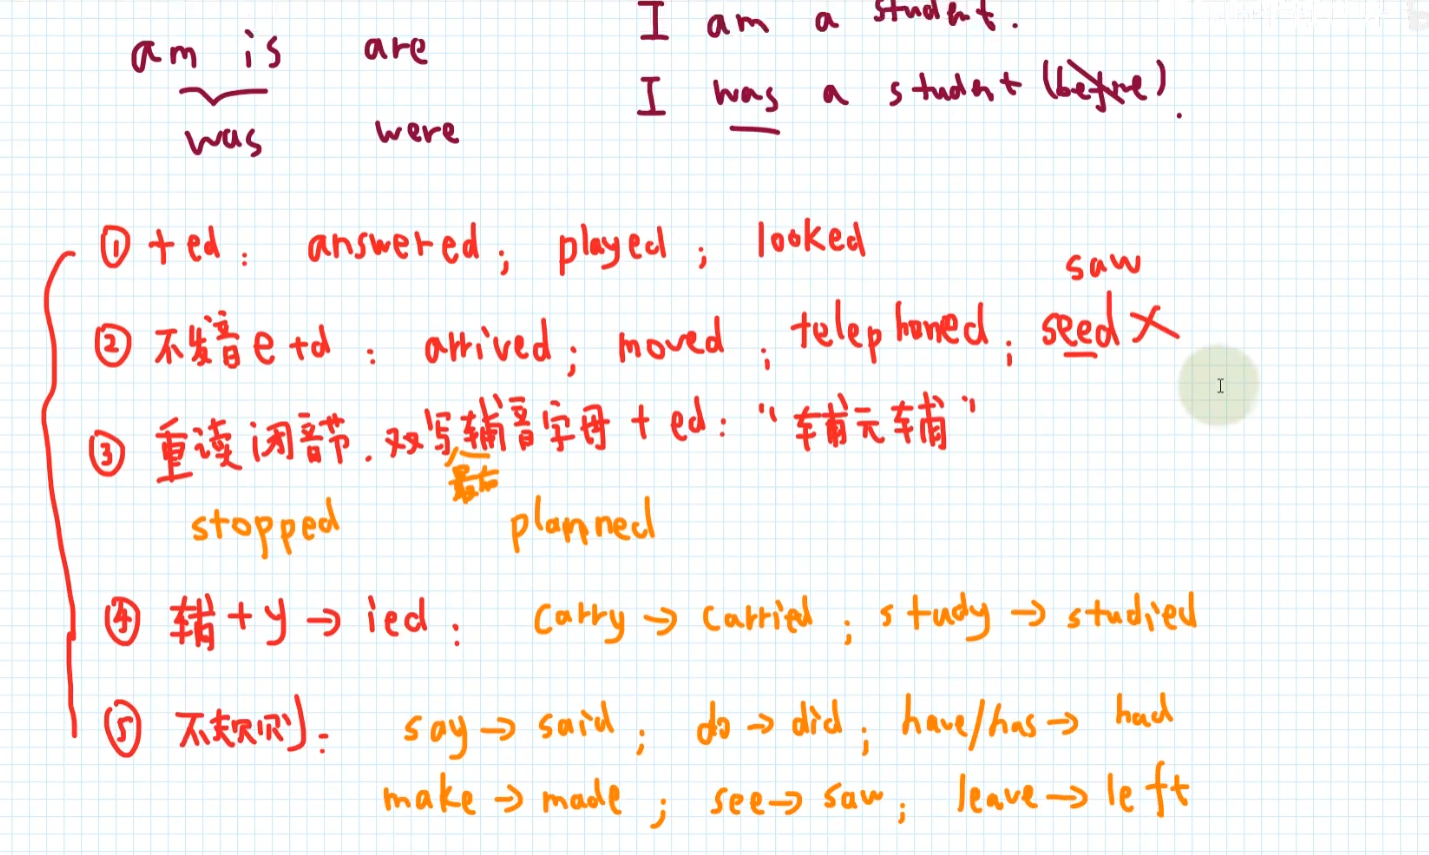 I am a student.
am is are
I was a student (before).
was were
① + ed: answered; played; looked
saw
② 不发音e +d: arrived; moved; telephoned; seed ×
③ 重读闭音节.双写辅音字母 + ed: "辅元辅"
最后
stopped planned
④ 辅+y→ied: carry→carried; study→studied
⑤ 不规则: say→said; do→did; have/has→had
make→made; see→saw; leave→left